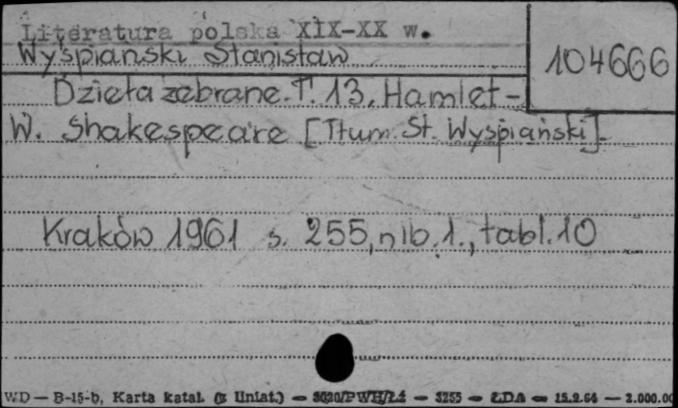 Literatura polska XIX-XX w.
Wyspiański Stanisław
104666
Dzieła zebrane. T. 13. Hamlet -
W. Shakespeare [Tłum. St. Wyspiański].
Kraków 1961 s. 255, nlb. 1., tabl. 10
WD — B-15-b, Karta katal. (z Uniat.) — PWH/Łź — 3255 — ŁDA — 15.2.64 — 2.000.00